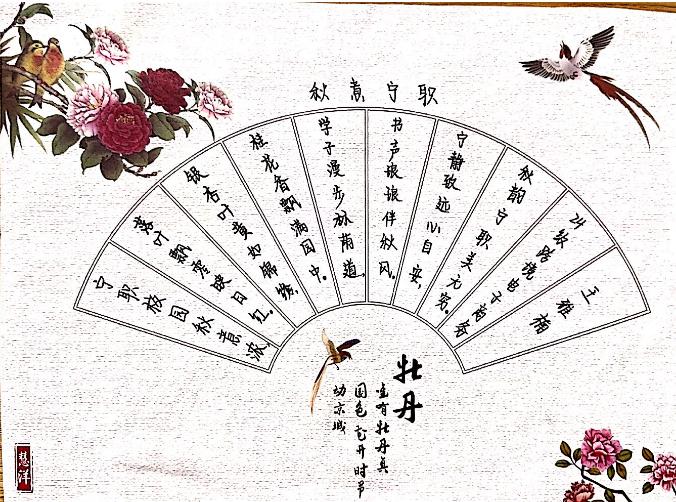 秋意宁职
宁职校园秋意浓,
落叶飘零映日红.
银杏叶黄如锦绣,
桂花香飘满园中.
学子漫步林荫道,
书声琅琅伴秋风.
宁静致远心自安,
秋韵宁职美无穷.
24级跨境电子商务
王雅楠
牡丹
唯有牡丹真
国色 花开时节
动京城
慧洋